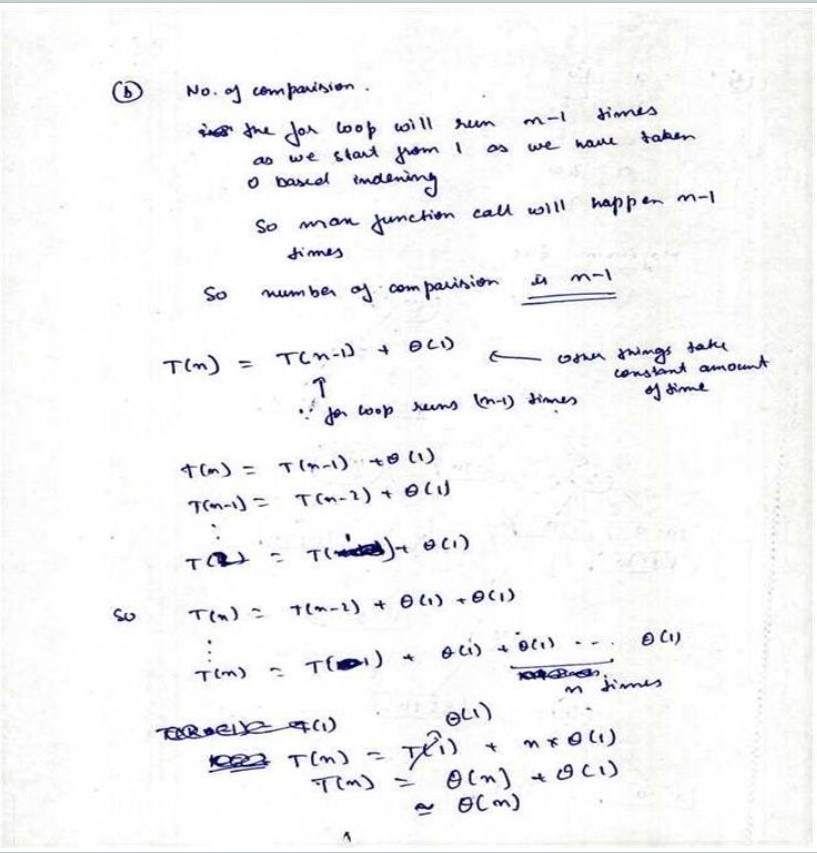 (b) No. of comparision.
the for loop will run n-1 times
as we start from 1 as we have taken
0 based indexing
So max function call will happen n-1
times
So number of comparision is n-1
T(n) = T(n-1) + θ(1) ← other things take
constant amount
of time
↑
∵ for loop runs (n-1) times
T(n) = T(n-1) + θ(1)
T(n-1) = T(n-2) + θ(1)
⋮
T(2) = T(1) + θ(1)
So T(n) = T(n-2) + θ(1) + θ(1)
⋮
T(n) = T(1) + θ(1) + θ(1) ... θ(1)
n times
T(1) θ(1)
T(n) = T(1) + n * θ(1)
T(n) = θ(n) + θ(1)
≃ θ(n)